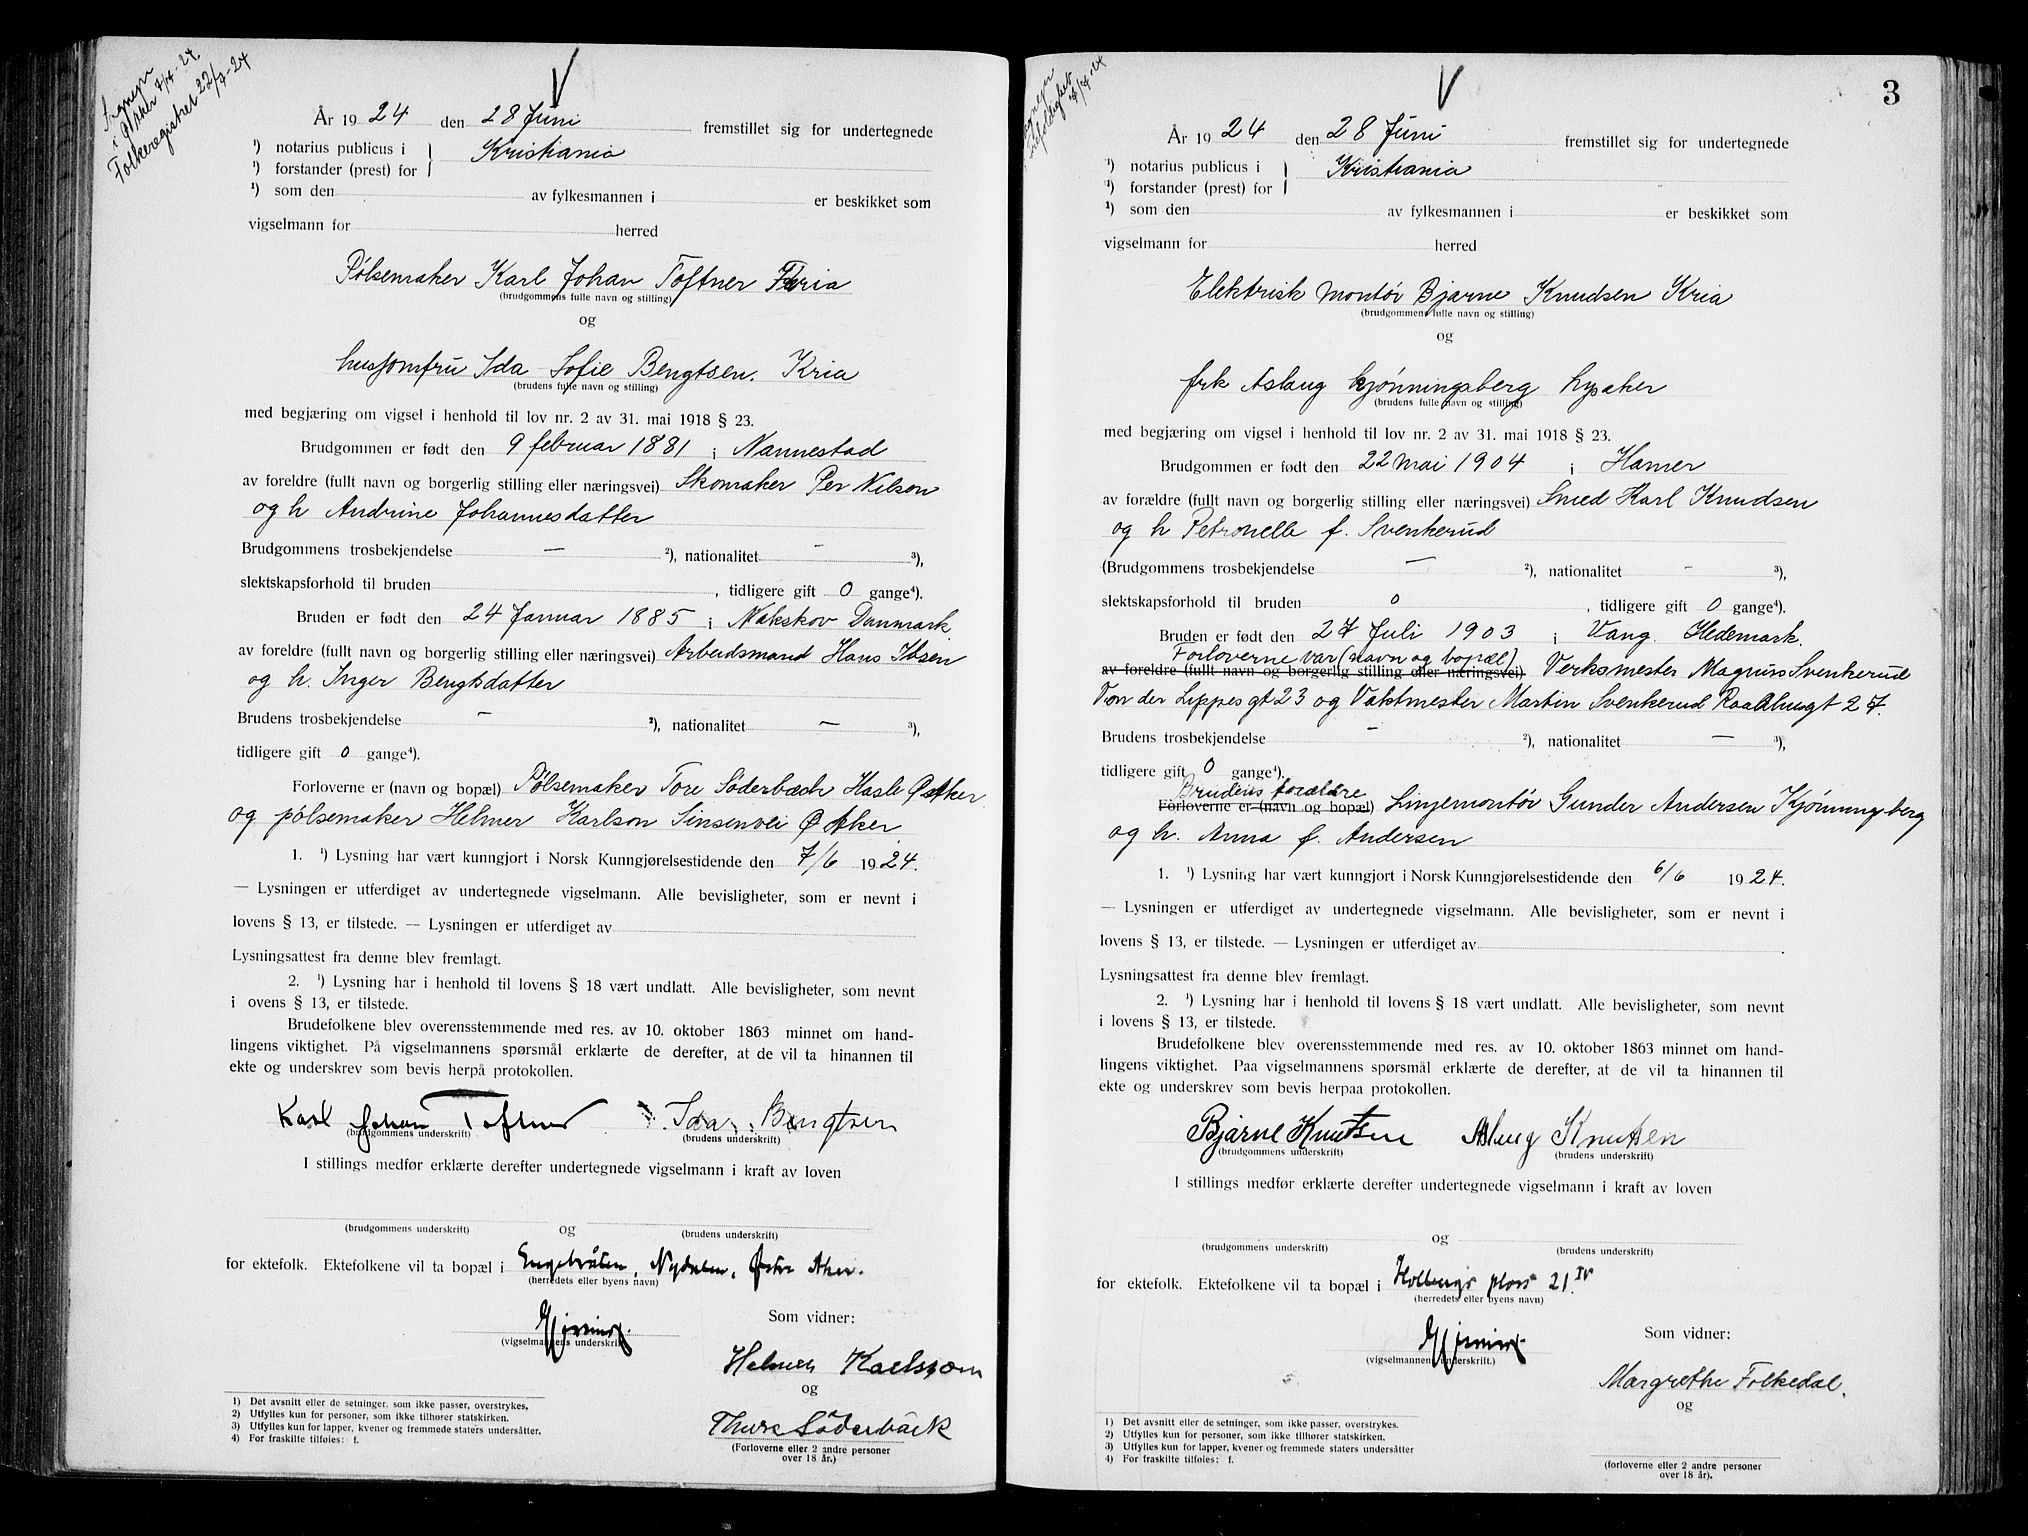 i Aker 7/7-24.
Folkeregistret 22/7-24
V
År 1924 den 28 Juni fremstillet sig for undertegnede
¹) notarius publicus i Kristiania
¹) forstander (prest) for
¹) som den av fylkesmannen i er beskikket som
vigselmann for herred
Pølsemaker Karl Johan Toftner Kria
(brudgommens fulle navn og stilling)
og
husjomfru Ida Sofie Bengtsen. Kria
(brudens fulle navn og stilling)
med begjæring om vigsel i henhold til lov nr. 2 av 31. mai 1918 § 23.
Brudgommen er født den 9 februar 1881 i Nannestad
av foreldre (fullt navn og borgerlig stilling eller næringsvei) Skomaker Per Nilson
og h Andrine Johannesdatter
Brudgommens trosbekjendelse — ²), nationalitet — ³),
slektskapsforhold til bruden , tidligere gift 0 gange⁴).
Bruden er født den 24 Januar 1885 i Nakskov Danmark
av foreldre (fullt navn og borgerlig stilling eller næringsvei) Arbeidsmand Hans Ibsen
og h. Inger Bengtsdatter
Brudens trosbekjendelse — ²), nationalitet — ³),
tidligere gift 0 gange⁴).
Forloverne er (navn og bopæl) Pølsemaker Tore Söderbäch Hasle Ø Aker
og pølsemaker Helmer Karlson Sinsenvei Ø Aker
1. ¹) Lysning har vært kunngjort i Norsk Kunngjørelsestidende den 7/6 1924.
— Lysningen er utferdiget av undertegnede vigselmann. Alle bevisligheter, som er nevnt i
lovens § 13, er tilstede. — Lysningen er utferdiget av
Lysningsattest fra denne blev fremlagt.
2. ¹) Lysning har i henhold til lovens § 18 vært undlatt. Alle bevisligheter, som nevnt
i ovens § 13, er tilstede.
Brudefolkene blev overensstemmende med res. av 10. oktober 1863 minnet om hand-
lingens viktighet. På vigselmannens spørsmål erklærte de derefter, at de vil ta hinannen til
ekte og underskrev som bevis herpå protokollen.
Karl Johan Toftner Ida Bengtsen
(brudgommens underskrift) (brudens underskrift)
I stillings medfør erklærte derefter undertegnede vigselmann i kraft av loven
og
(brudgommens underskrift) (brudens underskrift)
for ektefolk. Ektefolkene vil ta bopæl i Engebråten, Nydalen, Østre Aker.
(herredets eller byens navn)
(vigselmannens underskrift)
Som vidner:
Helmer Karlsson
og
Thure Söderbäck
(Forloverne eller 2 andre personer
over 18 år.)
1) Det avsnitt eller de setninger, som ikke passer, overstrykes.
2) Utfylles kun for personer, som ikke tilhører statskirken.
3) Utfylles kun for lapper, kvener og fremmede staters undersåtter.
4) For fraskilte tilføies: f.
3
V
År 1924 den 28 Juni fremstillet sig for undertegnede
¹) notarius publicus i Kristiania
¹) forstander (prest) for
¹) som den av fylkesmannen i er beskikket som
vigselmann for herred
Elektrisk montør Bjarne Knudsen Kria
(brudgommens fulle navn og stilling)
og
frk Aslaug Kjønningsberg Lysaker
(brudens fulle navn og stilling)
med begjæring om vigsel i henhold til lov nr. 2 av 31. mai 1918 § 23.
Brudgommen er født den 22 mai 1904 i Hamer
av forældre (fullt navn og borgerlig stilling eller næringsvei) Smed Karl Knudsen
og h Petronelle f. Svenkerud
(Brudgommens trosbekjendelse — ²), nationalitet — ³),
slektskapsforhold til bruden 0 , tidligere gift 0 gange⁴).
Bruden er født den 27 Juli 1903 i Vang. Hedemark.
Forloverne var (navn og bopæl)
av foreldre (fullt navn og borgerlig stilling eller næringsvei) Verksmester Magnus Svenkerud
Von der Lippes gt 23 og Vaktmester Martin Svenkerud Raadhusgt 27.
Brudens trosbekjendelse — ²), nationalitet — ³),
tidligere gift 0 gange⁴).
Brudens forældre
Forloverne er (navn og bopæl) Linjemontør Gunder Andersen Kjønningsberg
og h. Anna f. Andersen
1. ¹) Lysning har vært kunngjort i Norsk Kunngjørelsestidende den 6/6 1924.
— Lysningen er utferdiget av undertegnede vigselmann. Alle bevisligheter, som er nevnt i
lovens § 13, er tilstede. — Lysningen er utferdiget av
Lysningsattest fra denne blev fremlagt.
2. ¹) Lysning har i henhold til lovens § 18 vært undlatt. Alle bevisligheter, som nevnt
i lovens § 13, er tilstede.
Brudefolkene blev overensstemmende med res. av 10. oktober 1863 minnet om hand-
lingens viktighet. Paa vigselmannens spørsmål erklærte de derefter, at de vil ta hinannen til
ekte og underskrev som bevis herpaa protokollen.
Bjarne Knutsen Aslaug Knutsen
(brudgommens underskrift) (brudens underskrift)
I stillings medfør erklærte derefter undertegnede vigselmann i kraft av loven
og
(brudgommens underskrift) (brudens underskrift)
for ektefolk. Ektefolkene vil ta bopæl i Holbergs plass 21 IV
(herredets eller byens navn)
(vigselmannens underskrift.)
Som vidner:
Margrethe Folkedal.
og
(forloverne eller 2 andre personer
over 18 år).
1) Det avsnitt eller de setninger, som ikke passer, overstrykes.
2) Utfylles kun for personer, som ikke tilhører statskirken.
3) Utfylles kun for lapper, kvener og fremmede staters undersåtter
4) For fraskilte tilføies: f.